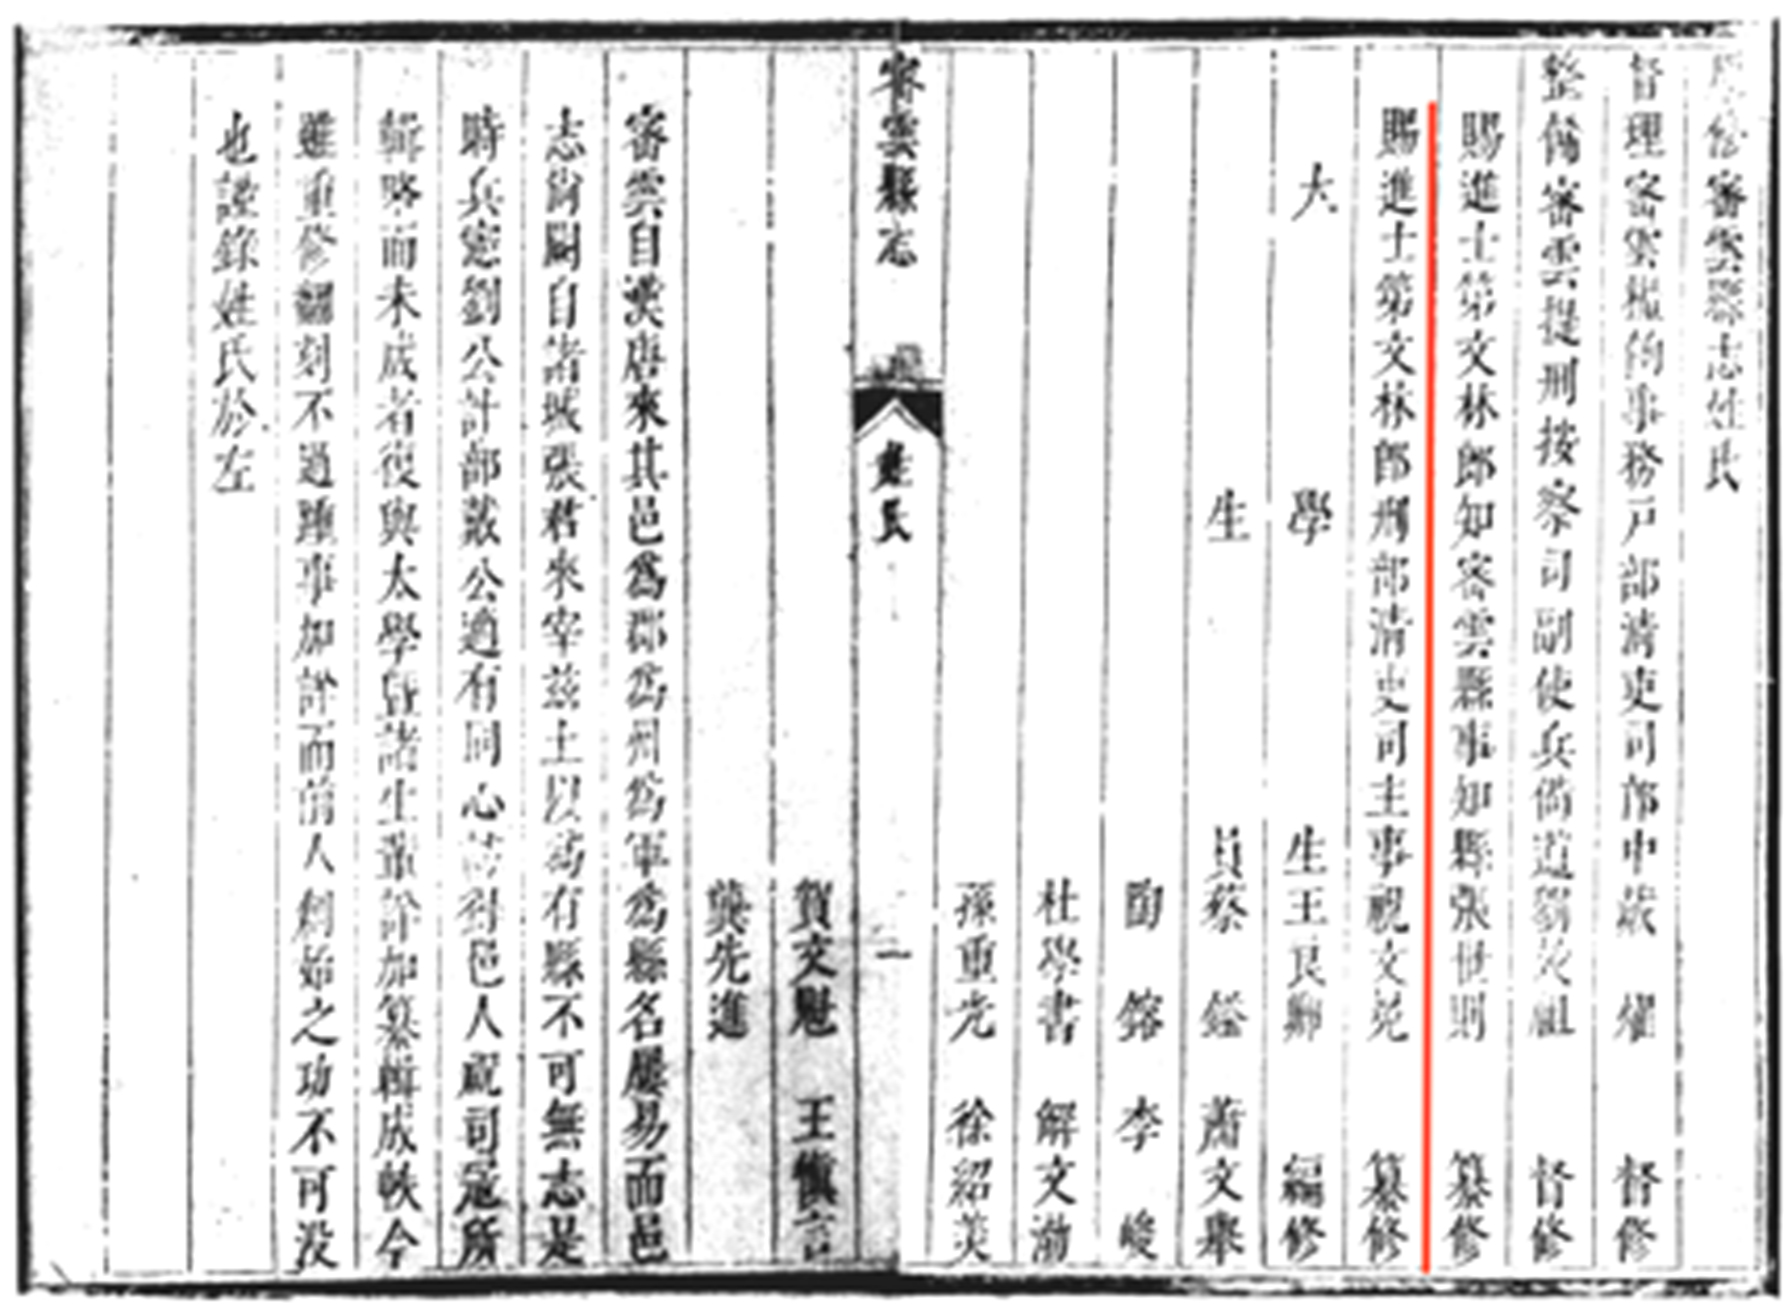 修密雲縣志姓氏
督理密雲糧餉事務戶部清吏司郎中戴 燿 督修
整飭密雲提刑按察司副使兵備道劉效祖 督修
賜進士第文林郎知密雲縣事知縣張世則 纂修
賜進士第文林郎刑部清吏司主事祝文冕 纂修
大 學 生王良卿 編修
生 員蔡 鎰 蕭文舉
陶 鎔 李 峻
杜學書 解文瀚
孫重光 徐紹美
密雲縣志 姓氏 一
賀文魁 王慎言
龔先進
密雲自漢唐來其邑為郡為州為軍為縣名屢易而邑
志尚闕自諸城張君來宰茲土以為有縣不可無志是
時兵憲劉公計部戴公適有同心 邑人祝司寇所
輯略而未成者復與太學暨諸生輩訂加纂輯成帙今
雖重修翻刻不過踵事加詳而前人創始之功不可沒
也謹錄姓氏於左